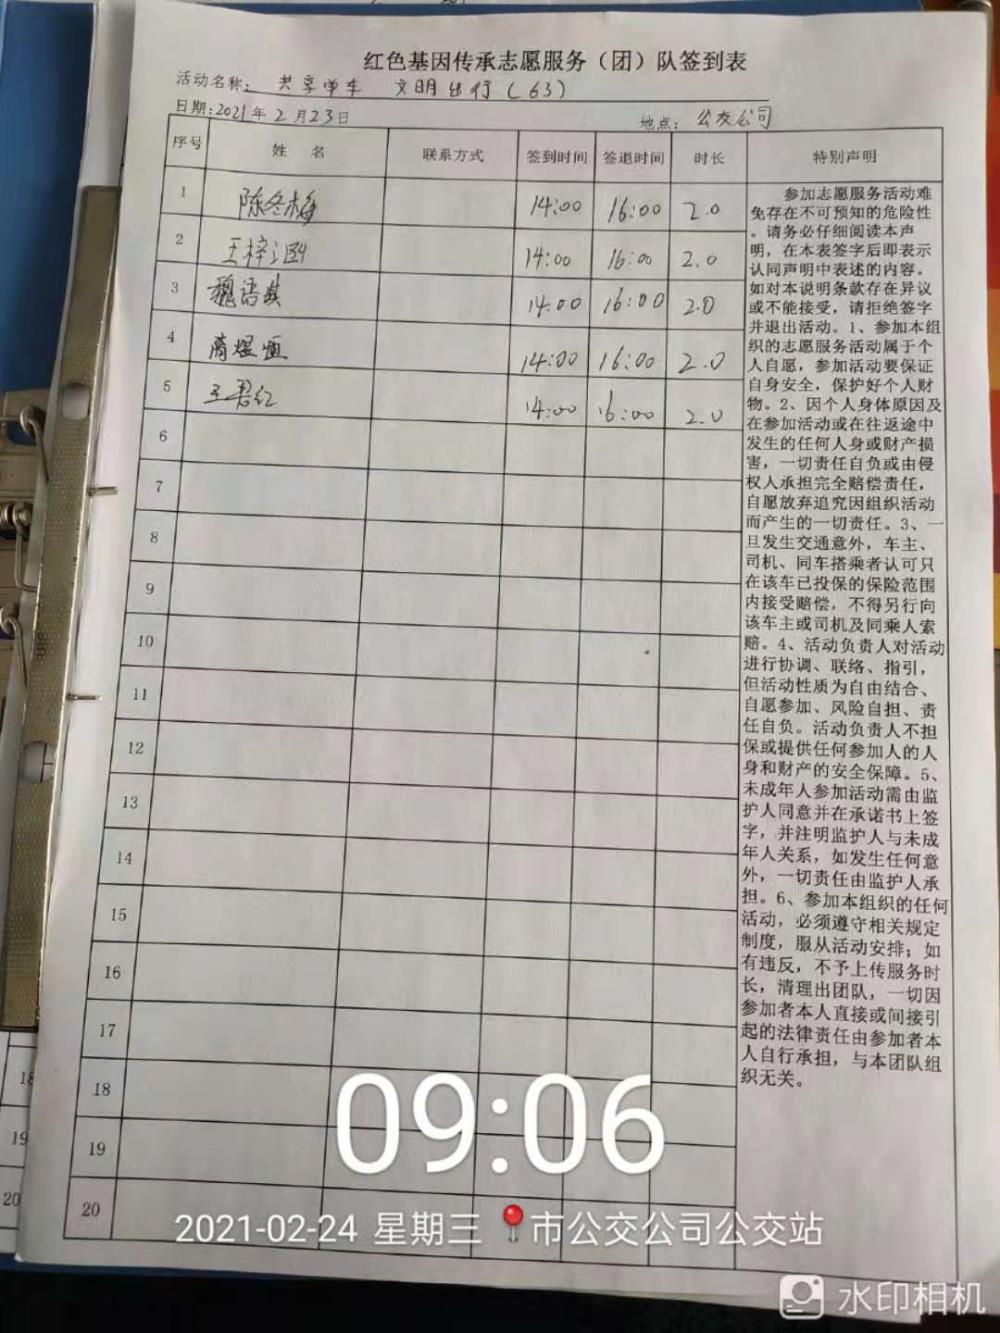 红色基因传承志愿服务（团）队签到表
活动名称： 共享单车 文明出行（63）
日期：2021年2月23日 地点： 公交公司
序号 姓名 联系方式 签到时间 签退时间 时长 特别声明
1 陈冬梅 14:00 16:00 2.0
2 王梓 14:00 16:00 2.0
3 魏语 14:00 16:00 2.0
4 煜恒 14:00 16:00 2.0
5 王君红 14:00 16:00 2.0
6
7
8
9
10
11
12
13
14
15
16
17
18
19
20
参加志愿服务活动难
免存在不可预知的危险性
。请务必仔细阅读本声
明，在本表签字后即表示
认同声明中表述的内容。
如对本说明条款存在异议
或不能接受，请拒绝签字
并退出活动。1、参加本组
织的志愿服务活动属于个
人自愿，参加活动要保证
自身安全，保护好个人财
物。2、因个人身体原因及
在参加活动或在往返途中
发生的任何人身或财产损
害，一切责任自负或由侵
权人承担完全赔偿责任，
自愿放弃追究因组织活动
而产生的一切责任。3、一
旦发生交通意外，车主、
司机、同车搭乘者认可只
在该车已投保的保险范围
内接受赔偿，不得另行向
该车主或司机及同乘人索
赔。4、活动负责人对活动
进行协调、联络、指引，
但活动性质为自由结合、
自愿参加、风险自担、责
任自负。活动负责人不担
保或提供任何参加人的人
身和财产的安全保障。5、
未成年人参加活动需由监
护人同意并在承诺书上签
字，并注明监护人与未成
年人关系，如发生任何意
外，一切责任由监护人承
担。6、参加本组织的任何
活动，必须遵守相关规定
制度，服从活动安排；如
有违反，不予上传服务时
长，清理出团队，一切因
参加者本人直接或间接引
起的法律责任由参加者本
人自行承担，与本团队组
织无关。
18
19
20
09:06
2021-02-24 星期三 市公交公司公交站
水印相机